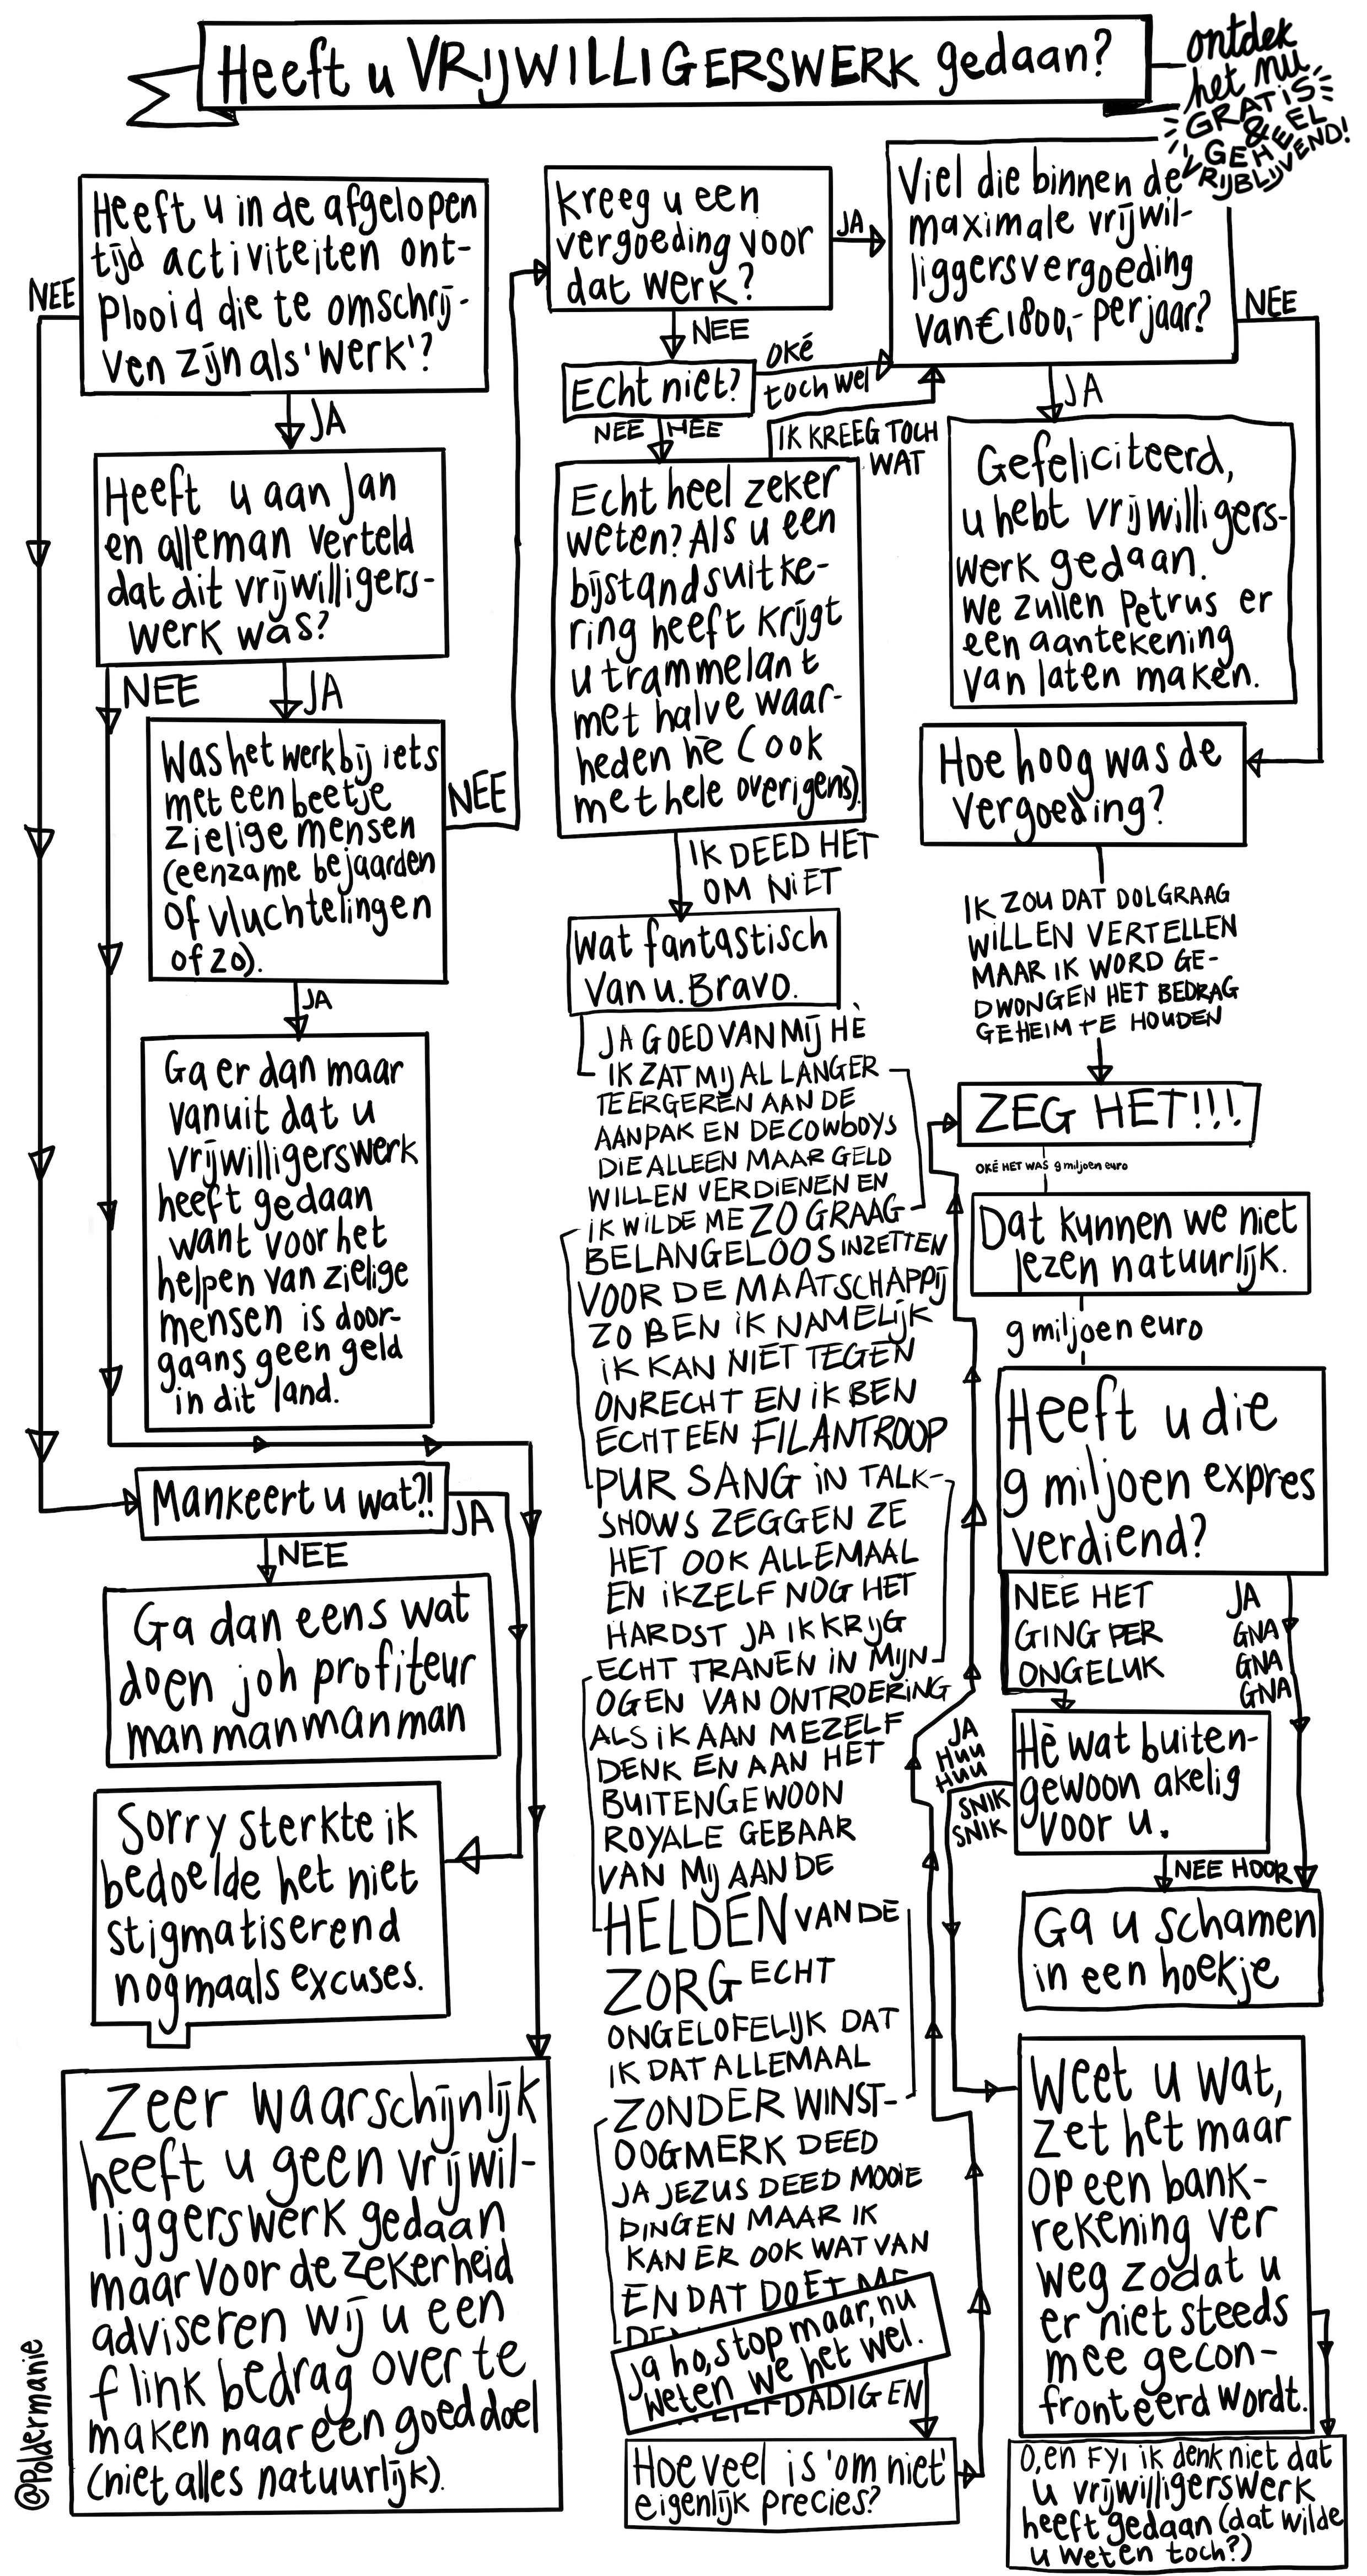 Heeft u VRIJWILLIGERSWERK gedaan?
ontdek
het nu
GRATIS
&
GEHEEL
VRIJBLIJVEND!
Heeft u in de afgelopen
tijd activiteiten ont-
plooid die te omschrij-
ven zijn als 'werk'?
NEE
JA
Heeft u aan Jan
en alleman verteld
dat dit vrijwilligers-
werk was?
NEE
JA
Was het werk bij iets
met een beetje
zielige mensen
(eenzame bejaarden
of vluchtelingen
of zo).
NEE
JA
Ga er dan maar
vanuit dat u
vrijwilligerswerk
heeft gedaan
want voor het
helpen van zielige
mensen is door-
gaans geen geld
in dit land.
Mankeert u wat?!
JA
NEE
Ga dan eens wat
doen joh profiteur
man man man man
Sorry sterkte ik
bedoelde het niet
stigmatiserend
nogmaals excuses.
Zeer waarschijnlijk
heeft u geen vrijwil-
liggerswerk gedaan
maar voor de zekerheid
adviseren wij u een
flink bedrag over te
maken naar een goed doel
(niet alles natuurlijk).
@Poldermanie
Kreeg u een
vergoeding voor
dat werk?
JA
NEE
Echt niet?
OKÉ
toch wel
NEE HEE
IK KREEG TOCH
WAT
Echt heel zeker
weten? Als u een
bijstandsuitke-
ring heeft krijgt
u trammelant
met halve waar-
heden hè (ook
met hele overigens).
IK DEED HET
OM NIET
Wat fantastisch
van u. Bravo.
JA GOED VAN MIJ HÈ
IK ZAT MIJ AL LANGER
TE ERGEREN AAN DE
AANPAK EN DE COWBOYS
DIE ALLEEN MAAR GELD
WILLEN VERDIENEN EN
IK WILDE ME ZO GRAAG
BELANGELOOS INZETTEN
VOOR DE MAATSCHAPPIJ
ZO BEN IK NAMELIJK
IK KAN NIET TEGEN
ONRECHT EN IK BEN
ECHT EEN FILANTROOP
PUR SANG IN TALK-
SHOWS ZEGGEN ZE
HET OOK ALLEMAAL
EN IKZELF NOG HET
HARDST JA IK KRIJG
ECHT TRANEN IN MIJN
OGEN VAN ONTROERING
ALS IK AAN MEZELF
DENK EN AAN HET
BUITENGEWOON
ROYALE GEBAAR
VAN MIJ AAN DE
HELDEN VAN DE
ZORG ECHT
ONGELOFELIJK DAT
IK DAT ALLEMAAL
ZONDER WINST-
OOGMERK DEED
JA JEZUS DEED MOOIE
DINGEN MAAR IK
KAN ER OOK WAT VAN
EN DAT DOET ME
ja ho, stop maar, nu
weten we het wel.
Hoeveel is 'om niet'
eigenlijk precies?
Viel die binnen de
maximale vrijwil-
liggersvergoeding
van €1800,- per jaar?
NEE
JA
Gefeliciteerd,
u hebt vrijwilligers-
werk gedaan.
We zullen Petrus er
een aantekening
van laten maken.
Hoe hoog was de
vergoeding?
IK ZOU DAT DOLGRAAG
WILLEN VERTELLEN
MAAR IK WORD GE-
DWONGEN HET BEDRAG
GEHEIM TE HOUDEN
ZEG HET!!!
OKÉ HET WAS 9 miljoen euro
Dat kunnen we niet
lezen natuurlijk.
9 miljoen euro
Heeft u die
9 miljoen expres
verdiend?
NEE HET
GING PER
ONGELUK
JA
GNA
GNA
GNA
Hè wat buiten-
gewoon akelig
voor u.
JA
HUU
HUU
SNIK
SNIK
NEE HOOR
Ga u schamen
in een hoekje
Weet u wat,
zet het maar
op een bank-
rekening ver
weg zodat u
er niet steeds
mee gecon-
fronteerd wordt.
O, en FYI ik denk niet dat
u vrijwilligerswerk
heeft gedaan (dat wilde
u weten toch?)